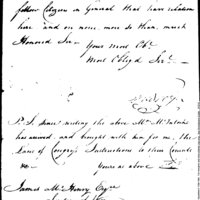 fellow Citizens in General that have relation
here and on none more so than, much
Honored Sir
Your Most Obt.
Most Obliged Servt.
P.S. Since writing the above Mr. McIntosh
has arrived and brought with him for me, the
Laws of Congress & Instructions to their Consuls
Yours as above
James McHenry Esqre